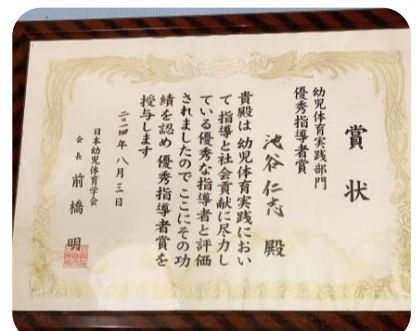 賞状
幼児体育実践部門
優秀指導者賞
池谷仁志 殿
貴殿は 幼児体育実践におい
て 指導と社会貢献に尽力し
ている優秀な指導者と評価
されましたので ここにその功
績を認め 優秀指導者賞を
授与します
二〇一四年 八月三一日
日本幼児体育学会
会長 前橋 明